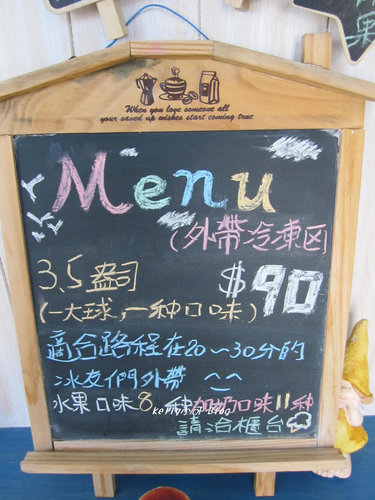 When you love someone all
your saved up wishes start coming true
Menu
(外帶冷凍区)
3.5盎司
$90
(一大球,一种口味)
適合路程在20~30分的
冰友們外帶 ^^
水果口味8种加奶口味11种
kelly's of Blog
請洽櫃台
果